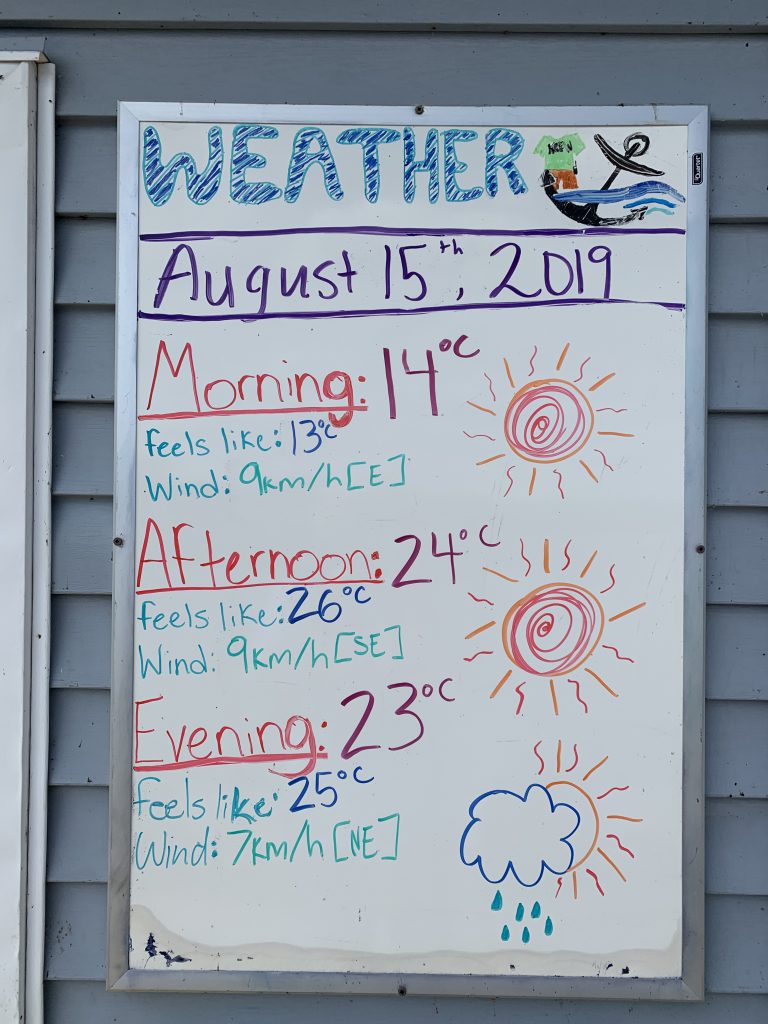 WEATHER
August 15th, 2019
Morning: 14°C
feels like: 13°C
Wind: 9km/h [E]
Afternoon: 24°C
feels like: 26°C
Wind: 9km/h [SE]
Evening: 23°C
feels like: 25°C
Wind: 7km/h [NE]